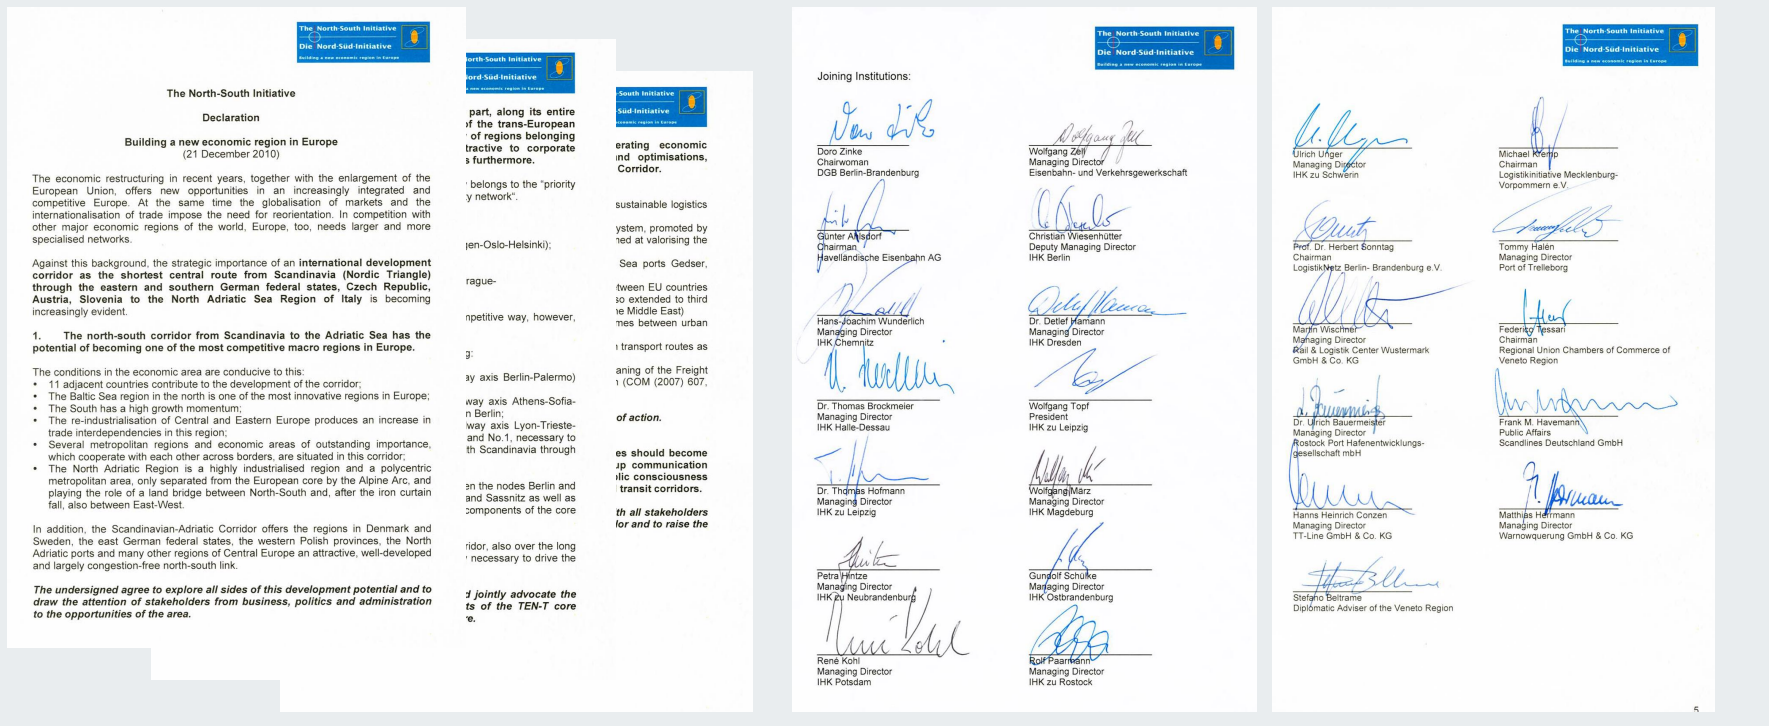 The North-South Initiative
Die Nord-Süd-Initiative
Building a new economic region in Europe
The North-South Initiative
Declaration
Building a new economic region in Europe
(21 December 2010)
The economic restructuring in recent years, together with the enlargement of the
European Union, offers new opportunities in an increasingly integrated and
competitive Europe. At the same time the globalisation of markets and the
internationalisation of trade impose the need for reorientation. In competition with
other major economic regions of the world, Europe, too, needs larger and more
specialised networks.
Against this background, the strategic importance of an international development
corridor as the shortest central route from Scandinavia (Nordic Triangle)
through the eastern and southern German federal states, Czech Republic,
Austria, Slovenia to the North Adriatic Sea Region of Italy is becoming
increasingly evident.
1. The north-south corridor from Scandinavia to the Adriatic Sea has the
potential of becoming one of the most competitive macro regions in Europe.
The conditions in the economic area are conducive to this:
• 11 adjacent countries contribute to the development of the corridor;
• The Baltic Sea region in the north is one of the most innovative regions in Europe;
• The South has a high growth momentum;
• The re-industrialisation of Central and Eastern Europe produces an increase in
trade interdependencies in this region;
• Several metropolitan regions and economic areas of outstanding importance,
which cooperate with each other across borders, are situated in this corridor;
• The North Adriatic Region is a highly industrialised region and a polycentric
metropolitan area, only separated from the European core by the Alpine Arc, and
playing the role of a land bridge between North-South and, after the iron curtain
fall, also between East-West.
In addition, the Scandinavian-Adriatic Corridor offers the regions in Denmark and
Sweden, the east German federal states, the western Polish provinces, the North
Adriatic ports and many other regions of Central Europe an attractive, well-developed
and largely congestion-free north-south link.
The undersigned agree to explore all sides of this development potential and to
draw the attention of stakeholders from business, politics and administration
to the opportunities of the area.
orth-South Initiative
ord-Süd-Initiative
a new economic region in Europe
part, along its entire
of the trans-European
of regions belonging
tractive to corporate
s furthermore.
belongs to the "priority
y network".
gen-Oslo-Helsinki);
rague-
mpetitive way, however,
g:
ay axis Berlin-Palermo)
way axis Athens-Sofia-
n Berlin;
way axis Lyon-Trieste-
and No.1, necessary to
th Scandinavia through
en the nodes Berlin and
and Sassnitz as well as
components of the core
ridor, also over the long
necessary to drive the
d jointly advocate the
ts of the TEN-T core
re.
-South Initiative
-Süd-Initiative
economic region in Europe
erating economic
nd optimisations,
Corridor.
sustainable logistics
ystem, promoted by
med at valorising the
Sea ports Gedser,
tween EU countries
so extended to third
ne Middle East)
mes between urban
transport routes as
aning of the Freight
n (COM (2007) 607,
of action.
es should become
up communication
blic consciousness
transit corridors.
th all stakeholders
lor and to raise the
The North-South Initiative
Die Nord-Süd-Initiative
Building a new economic region in Europe
Joining Institutions:
Doro Zinke
Chairwoman
DGB Berlin-Brandenburg
Wolfgang Zell
Managing Director
Eisenbahn- und Verkehrsgewerkschaft
Günter Alsdorf
Chairman
Havelländische Eisenbahn AG
Christian Wiesenhütter
Deputy Managing Director
IHK Berlin
Hans-Joachim Wunderlich
Managing Director
IHK Chemnitz
Dr. Detlef Hamann
Managing Director
IHK Dresden
Dr. Thomas Brockmeier
Managing Director
IHK Halle-Dessau
Wolfgang Topf
President
IHK zu Leipzig
Dr. Thomas Hofmann
Managing Director
IHK zu Leipzig
Wolfgang März
Managing Director
IHK Magdeburg
Petra Hintze
Managing Director
IHK zu Neubrandenburg
Gundolf Schülke
Managing Director
IHK Ostbrandenburg
René Kohl
Managing Director
IHK Potsdam
Rolf Paarmann
Managing Director
IHK zu Rostock
The North-South Initiative
Die Nord-Süd-Initiative
Building a new economic region in Europe
Ulrich Unger
Managing Director
IHK zu Schwerin
Michael Kremp
Chairman
Logistikinitiative Mecklenburg-
Vorpommern e.V.
Prof. Dr. Herbert Sonntag
Chairman
LogistikNetz Berlin- Brandenburg e.V.
Tommy Halén
Managing Director
Port of Trelleborg
Martin Wischner
Managing Director
Rail & Logistik Center Wustermark
GmbH & Co. KG
Federico Tessari
Chairman
Regional Union Chambers of Commerce of
Veneto Region
Dr. Ulrich Bauermeister
Managing Director
Rostock Port Hafenentwicklungs-
gesellschaft mbH
Frank M. Havemann
Public Affairs
Scandlines Deutschland GmbH
Hanns Heinrich Conzen
Managing Director
TT-Line GmbH & Co. KG
Matthias Herrmann
Managing Director
Warnowquerung GmbH & Co. KG
Stefano Beltrame
Diplomatic Adviser of the Veneto Region
5